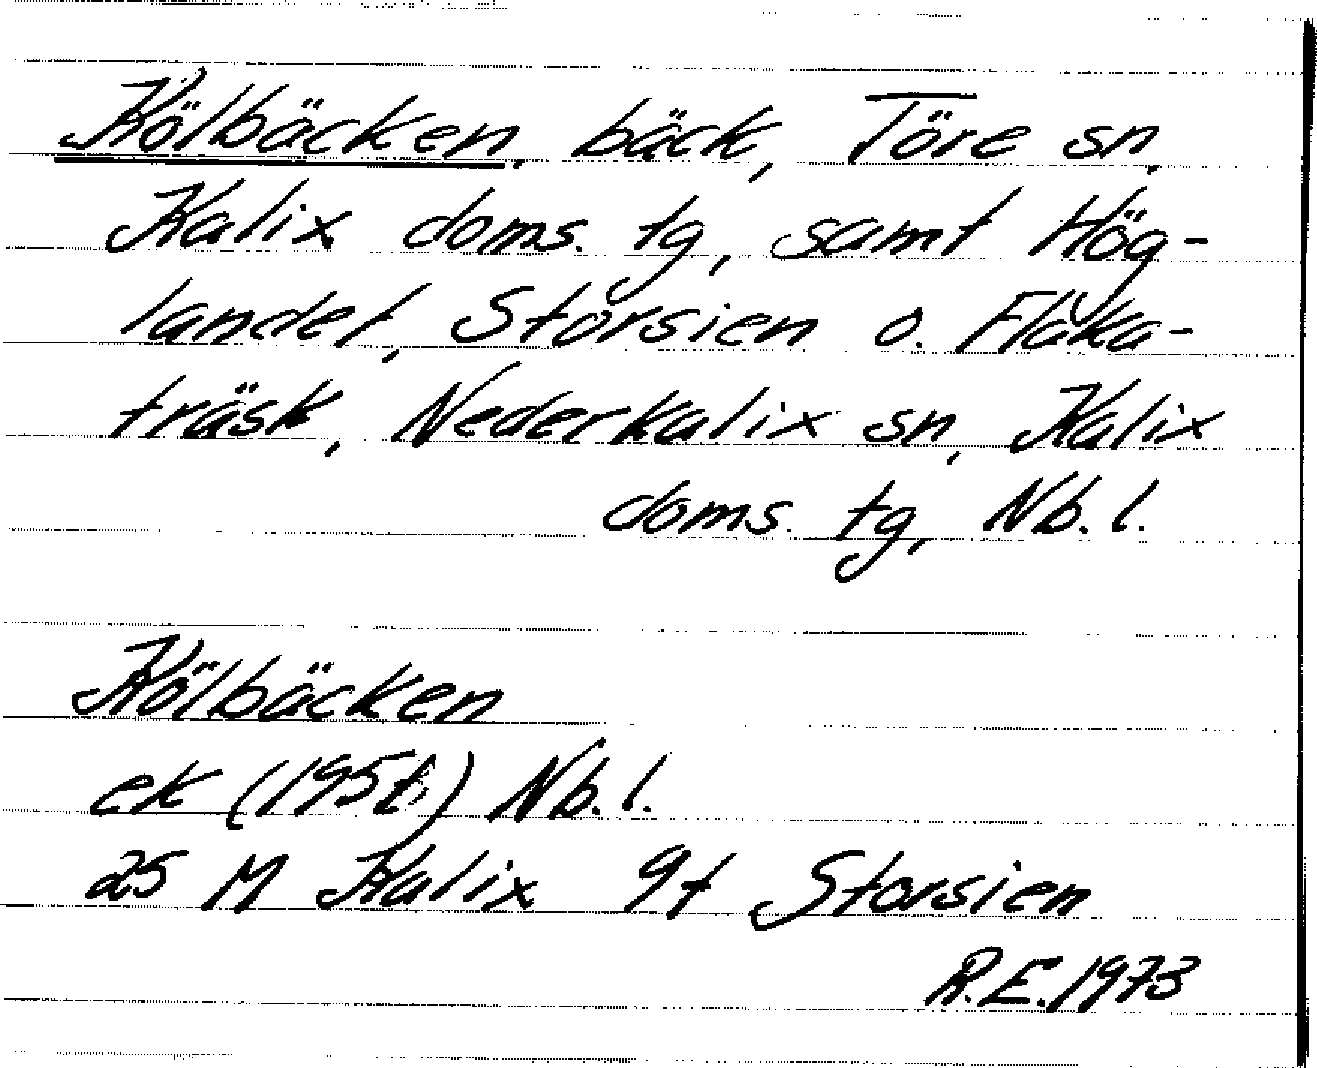 Kölbäcken, bäck, Töre sn,
Kalix doms. tg, samt Hög-
landet, Storsien o. Flåka-
träsk, Nederkalix sn, Kalix
doms. tg, Nb. l.
Kölbäcken
ek Nb. l.
25 M Kalix 9f Storsien
R.E. 1973